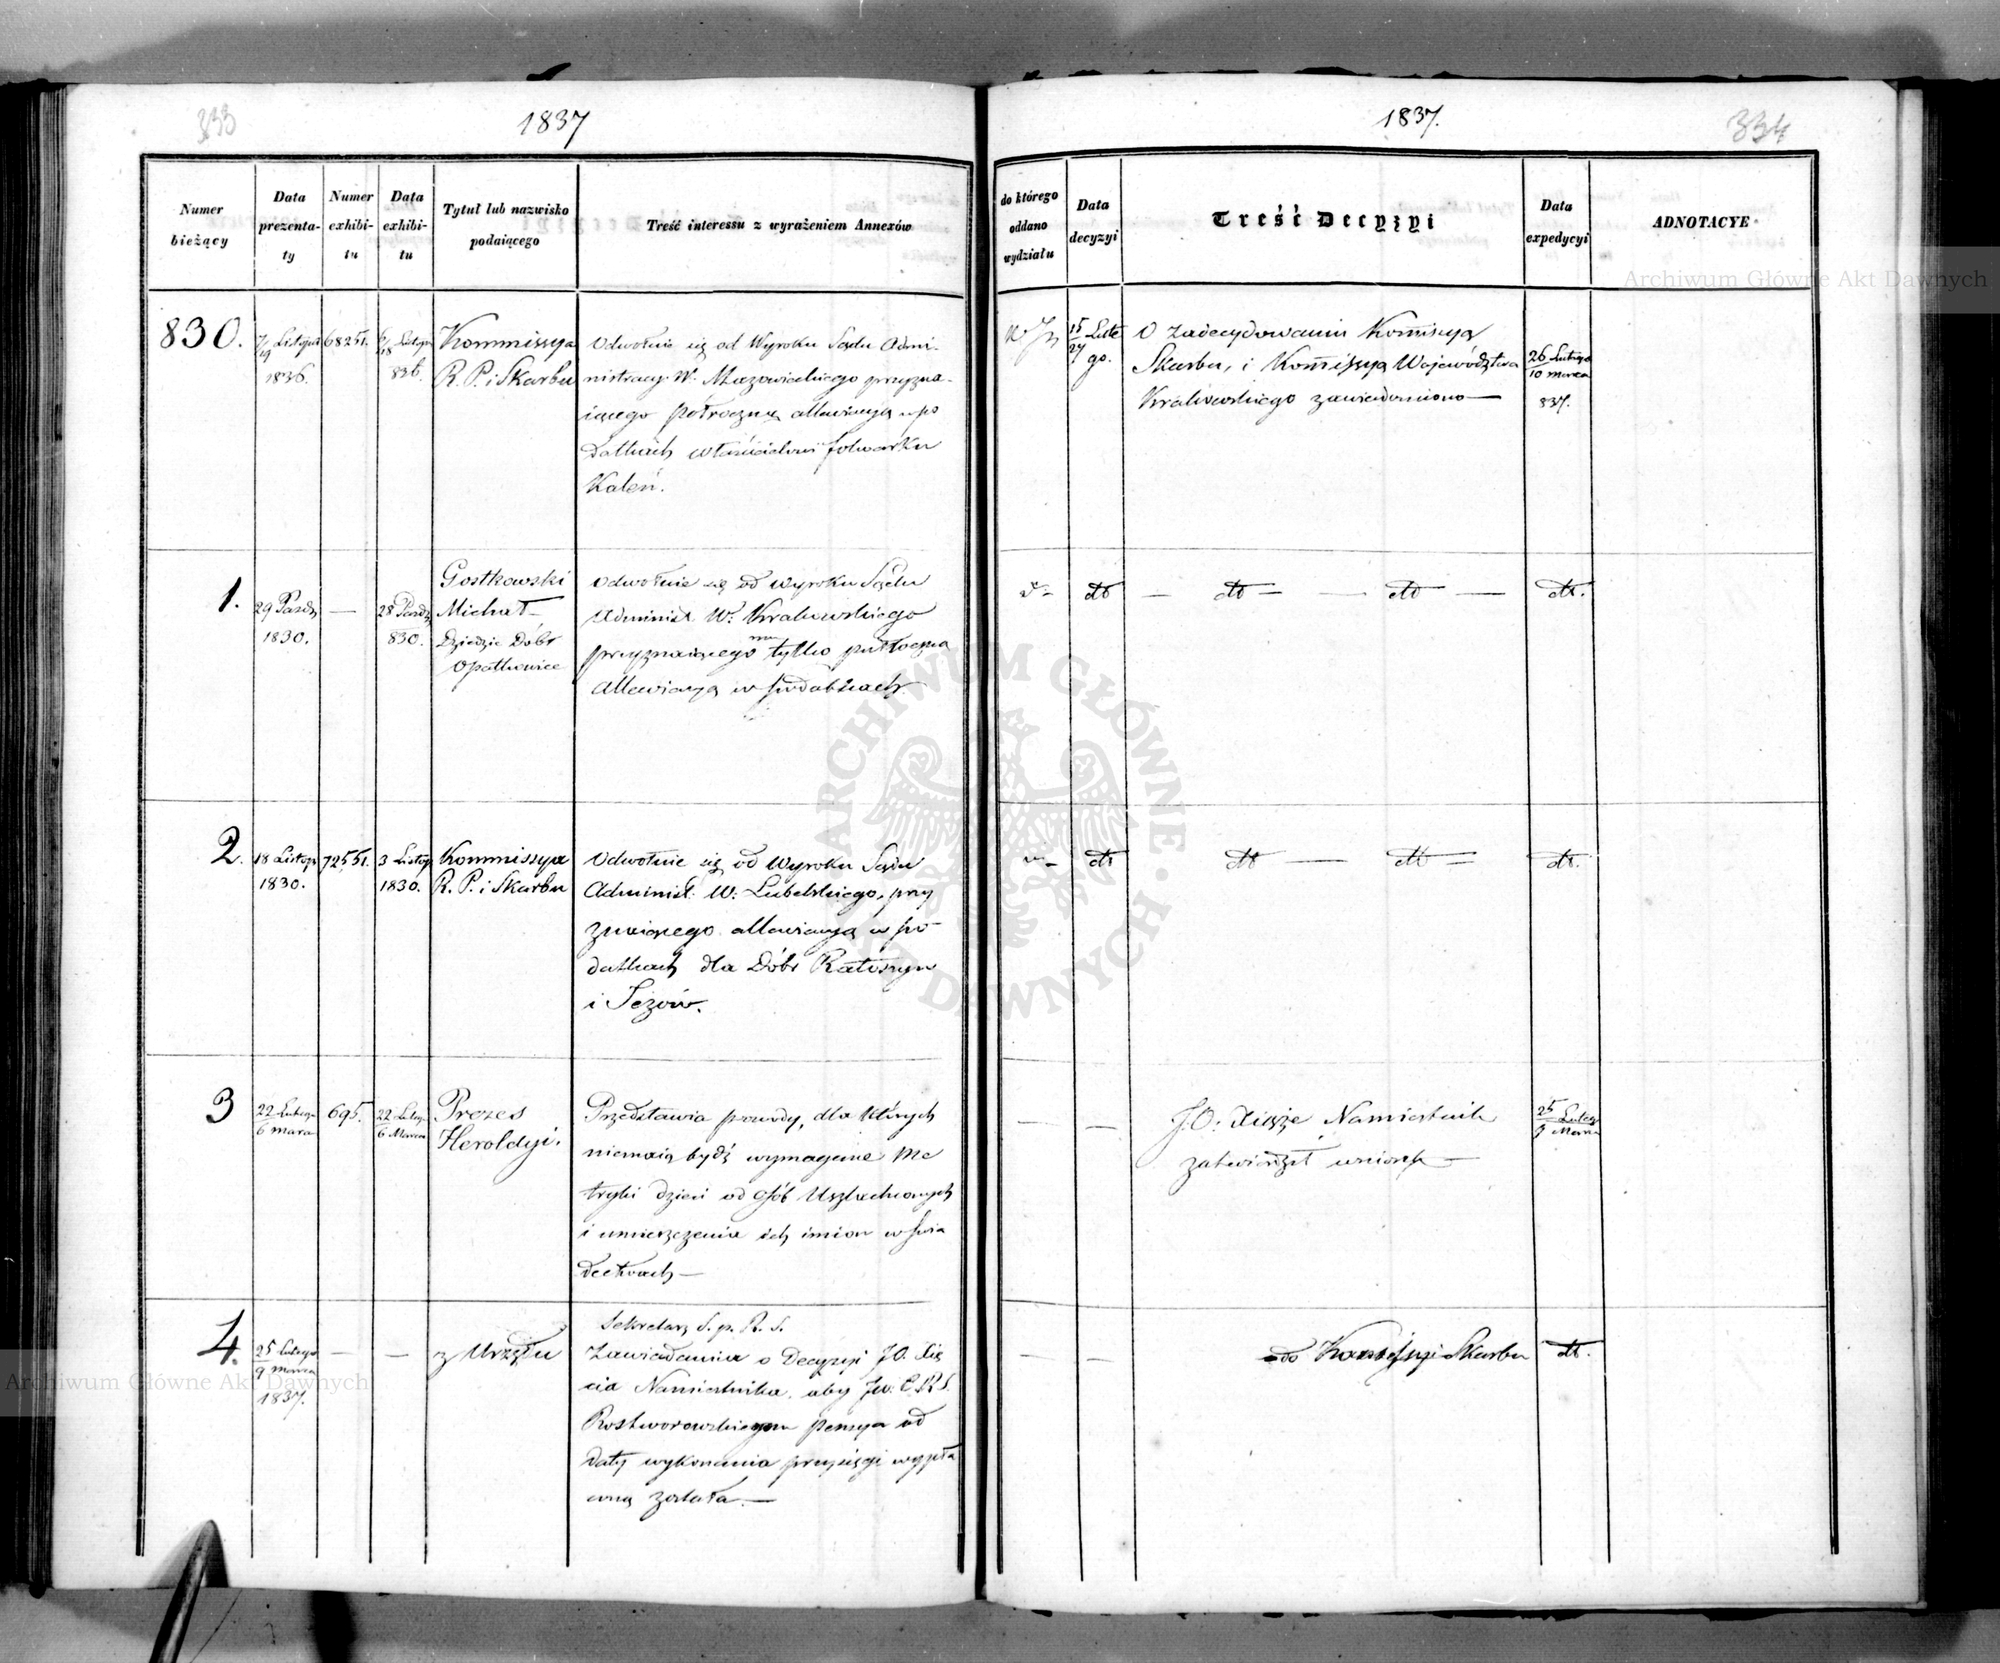 333
1837
Numer bieżący
Data prezenta-ty
Numer exhibi-tu
Data exhibi-tu
Tytuł lub nazwisko podaiącego
Treść interessu z wyrażeniem Annexów
830.
7/19 Listopa
1836.
68251.
6/18 Listop
836.
Kommissya
R. P. i Skarbu
Odwołnie się od Wyroku Sądu Admi-
nistracy: W. Mazowieckiego przyzna-
iącego półroczną allewiacyą w po
datkach właścicielowi folwarku
Kaleń.
1.
29 Paźdz
1830.
—
28 Paźdz
830.
Gostkowski
Michał
Dziedzic Dóbr
Opatkowice
Odwołnie się od Wyroku Sądu
Administ W. Krakowskiego
przyznaiącego mu tylko półroczną
allewiacyą w podatkach
2.
18 Listop
1830.
72551.
3 Listop
1830.
Kommissya
R. P. i Skarbu
Odwołnie się od Wyroku Sądu
Administ. W: Lubelskiego, przy
znaiącego allewiacyą w po
datkach dla Dóbr Ratoszyn
i
3
22 Lutego
6 Marca
695.
22 Luteg
6 Marca
Prezes
Heroldyi.
Przedstawia powody, dla których
niemaią bydź wymagane Me
tryki dzieci od osób Uszlachconych
i umieszczenia ich imion w świa
dectwach —
4.
25 Lutego
9 Marca
1837.
—
—
z Urzędu
Sekretarz S. p. R. S.
Zawiadamia o Decyzyi JO. Xię
cia Namiestnika, aby Jw.
Rostworowskiemu pensya od
daty wykonania przysięgi wypła
coną została. —
1837.
334
do którego oddano wydziału
Data decyzyi
Treść Decyzyi
Data expedycyi
ADNOTACYE
15/27 Lute
go.
O zadecydowaniu Kommissyą
Skarbu, i Kommissyą Województwa
Krakowskiego zawiadomiono —
26 Lutego
10 Marca
837.
dto
— dto — — dto —
dto.
dto
dto — dto —
dto.
— —
J.O. Xiąże Namiestnik
zatwierdził wniosek —
25 Luteg
9 Marca
— —
do Kommissyi Skarbu
dto.
Archiwum Główne Akt Dawnych
Archiwum Główne Akt Dawnych
ARCHIWUM GŁÓWNE AKT DAWNYCH